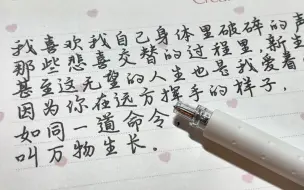 我喜欢我自己身体里破碎的声
那些悲喜交替的过程里,新
甚至这无望的人生也是我爱着
因为你在远方挥手的样子,
如同一道命令
叫万物生长.